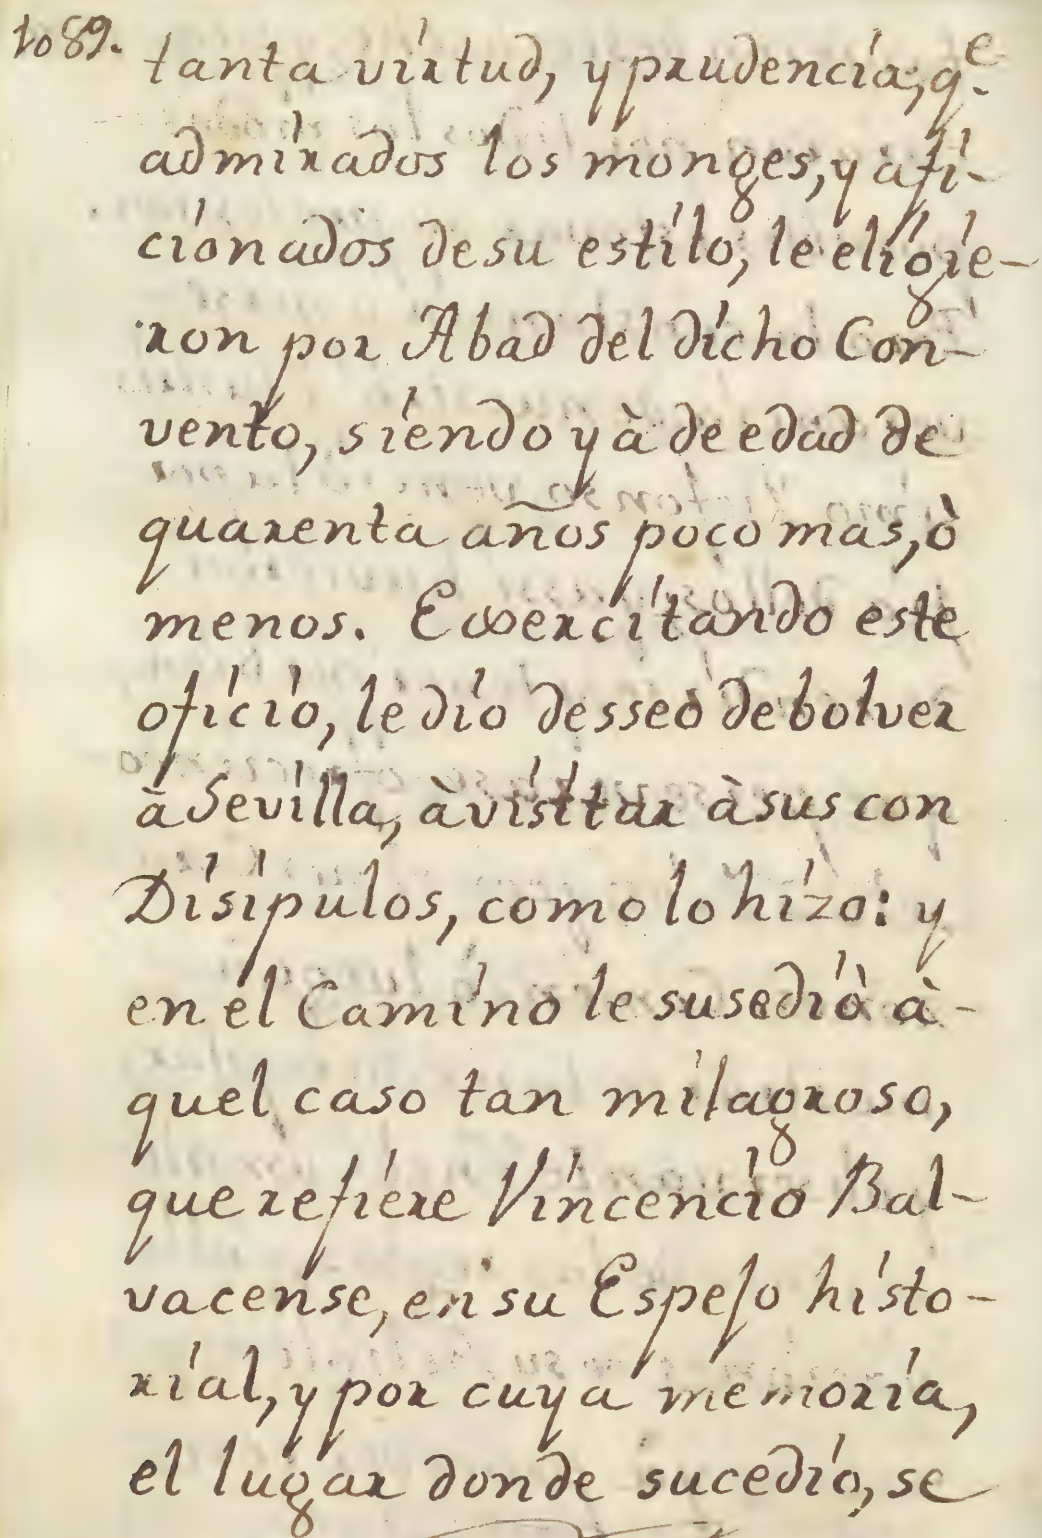 to 89.
tanta virtud, y prudencia; q.e
admirados los monges, y afi-
cionados de su estilo, le eligie-
ron por Abad del dicho Con-
vento, siendo yà de edad de
quarenta años poco mas, ò
menos. Exercitando este
oficio, le dio desseo de bolver
à Sevilla, à visitar à sus con
Disipulos, como lo hizo: y
en el Camino le susediò à-
quel caso tan milagroso,
que refiere Vincencio Bal-
vacense, en su Espejo histo-
rial, y por cuya memoria,
el lugar donde sucedio, se